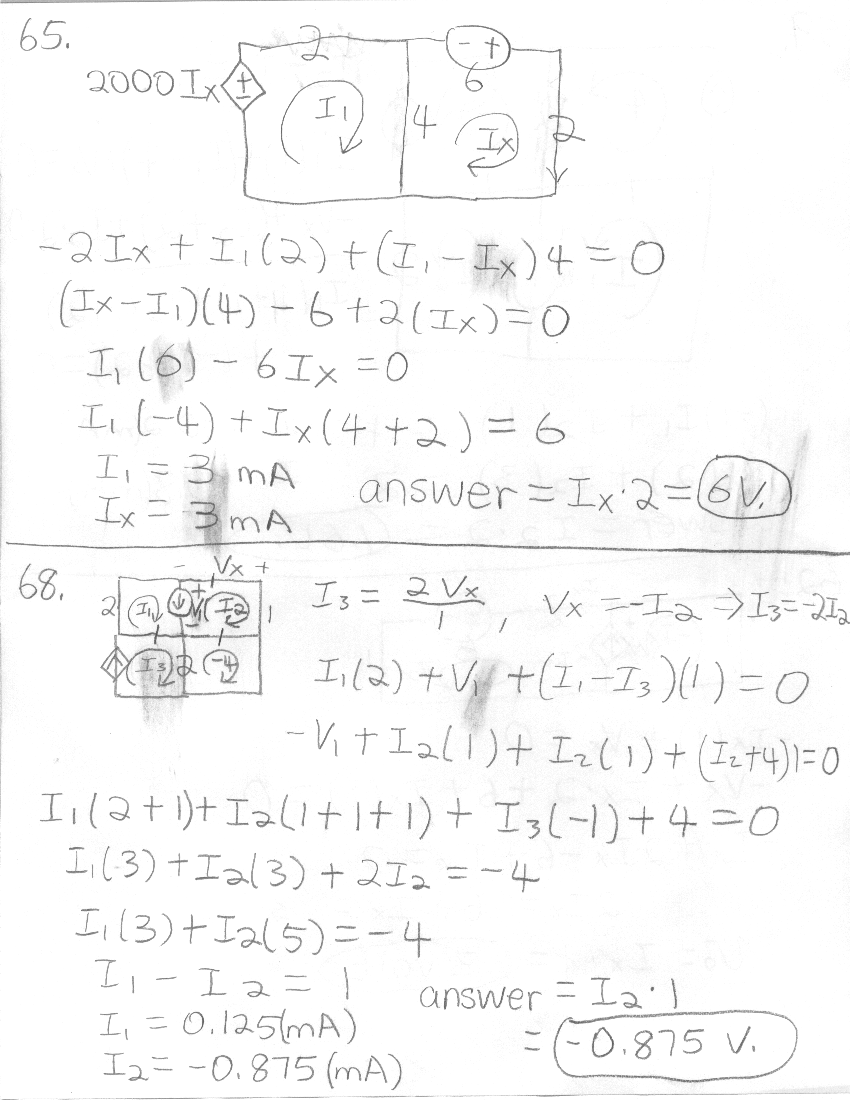 65.
2 - +
2000 Ix ± 6
I1 4 Ix 2
-2Ix + I1(2) + (I1 - Ix)4 = 0
(Ix-I1)(4) - 6 + 2(Ix) = 0
I1(6) - 6Ix = 0
I1(-4) + Ix(4+2) = 6
I1 = 3 mA
Ix = 3 mA
answer = Ix·2 = 6V.
68.
- Vx +
2 I1 + V1 - I2 1
I3 2 -4
I3 = 2Vx/1, Vx = -I2 ⇒ I3 = -2I2
I1(2) + V1 + (I1-I3)(1) = 0
-V1 + I2(1) + I2(1) + (I2+4)1=0
I1(2+1)+I2(1+1+1) + I3(-1)+4=0
I1(3)+I2(3) + 2I2 = -4
I1(3)+I2(5) = -4
I1 - I2 = 1
I1 = 0.125(mA)
I2 = -0.875(mA)
answer = I2·1
= -0.875 V.